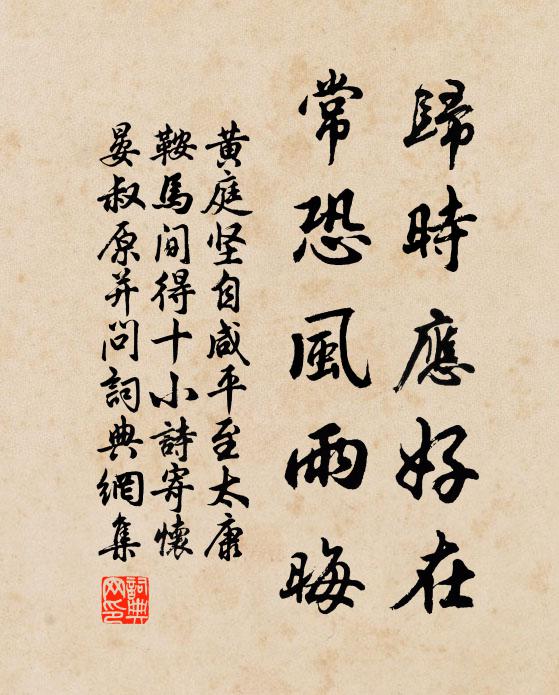 歸時應好在
常恐風雨晦
黄庭坚自咸平至太康
鞍馬间得十小詩寄懷
晏叔原并问詞典網集
詞典网印